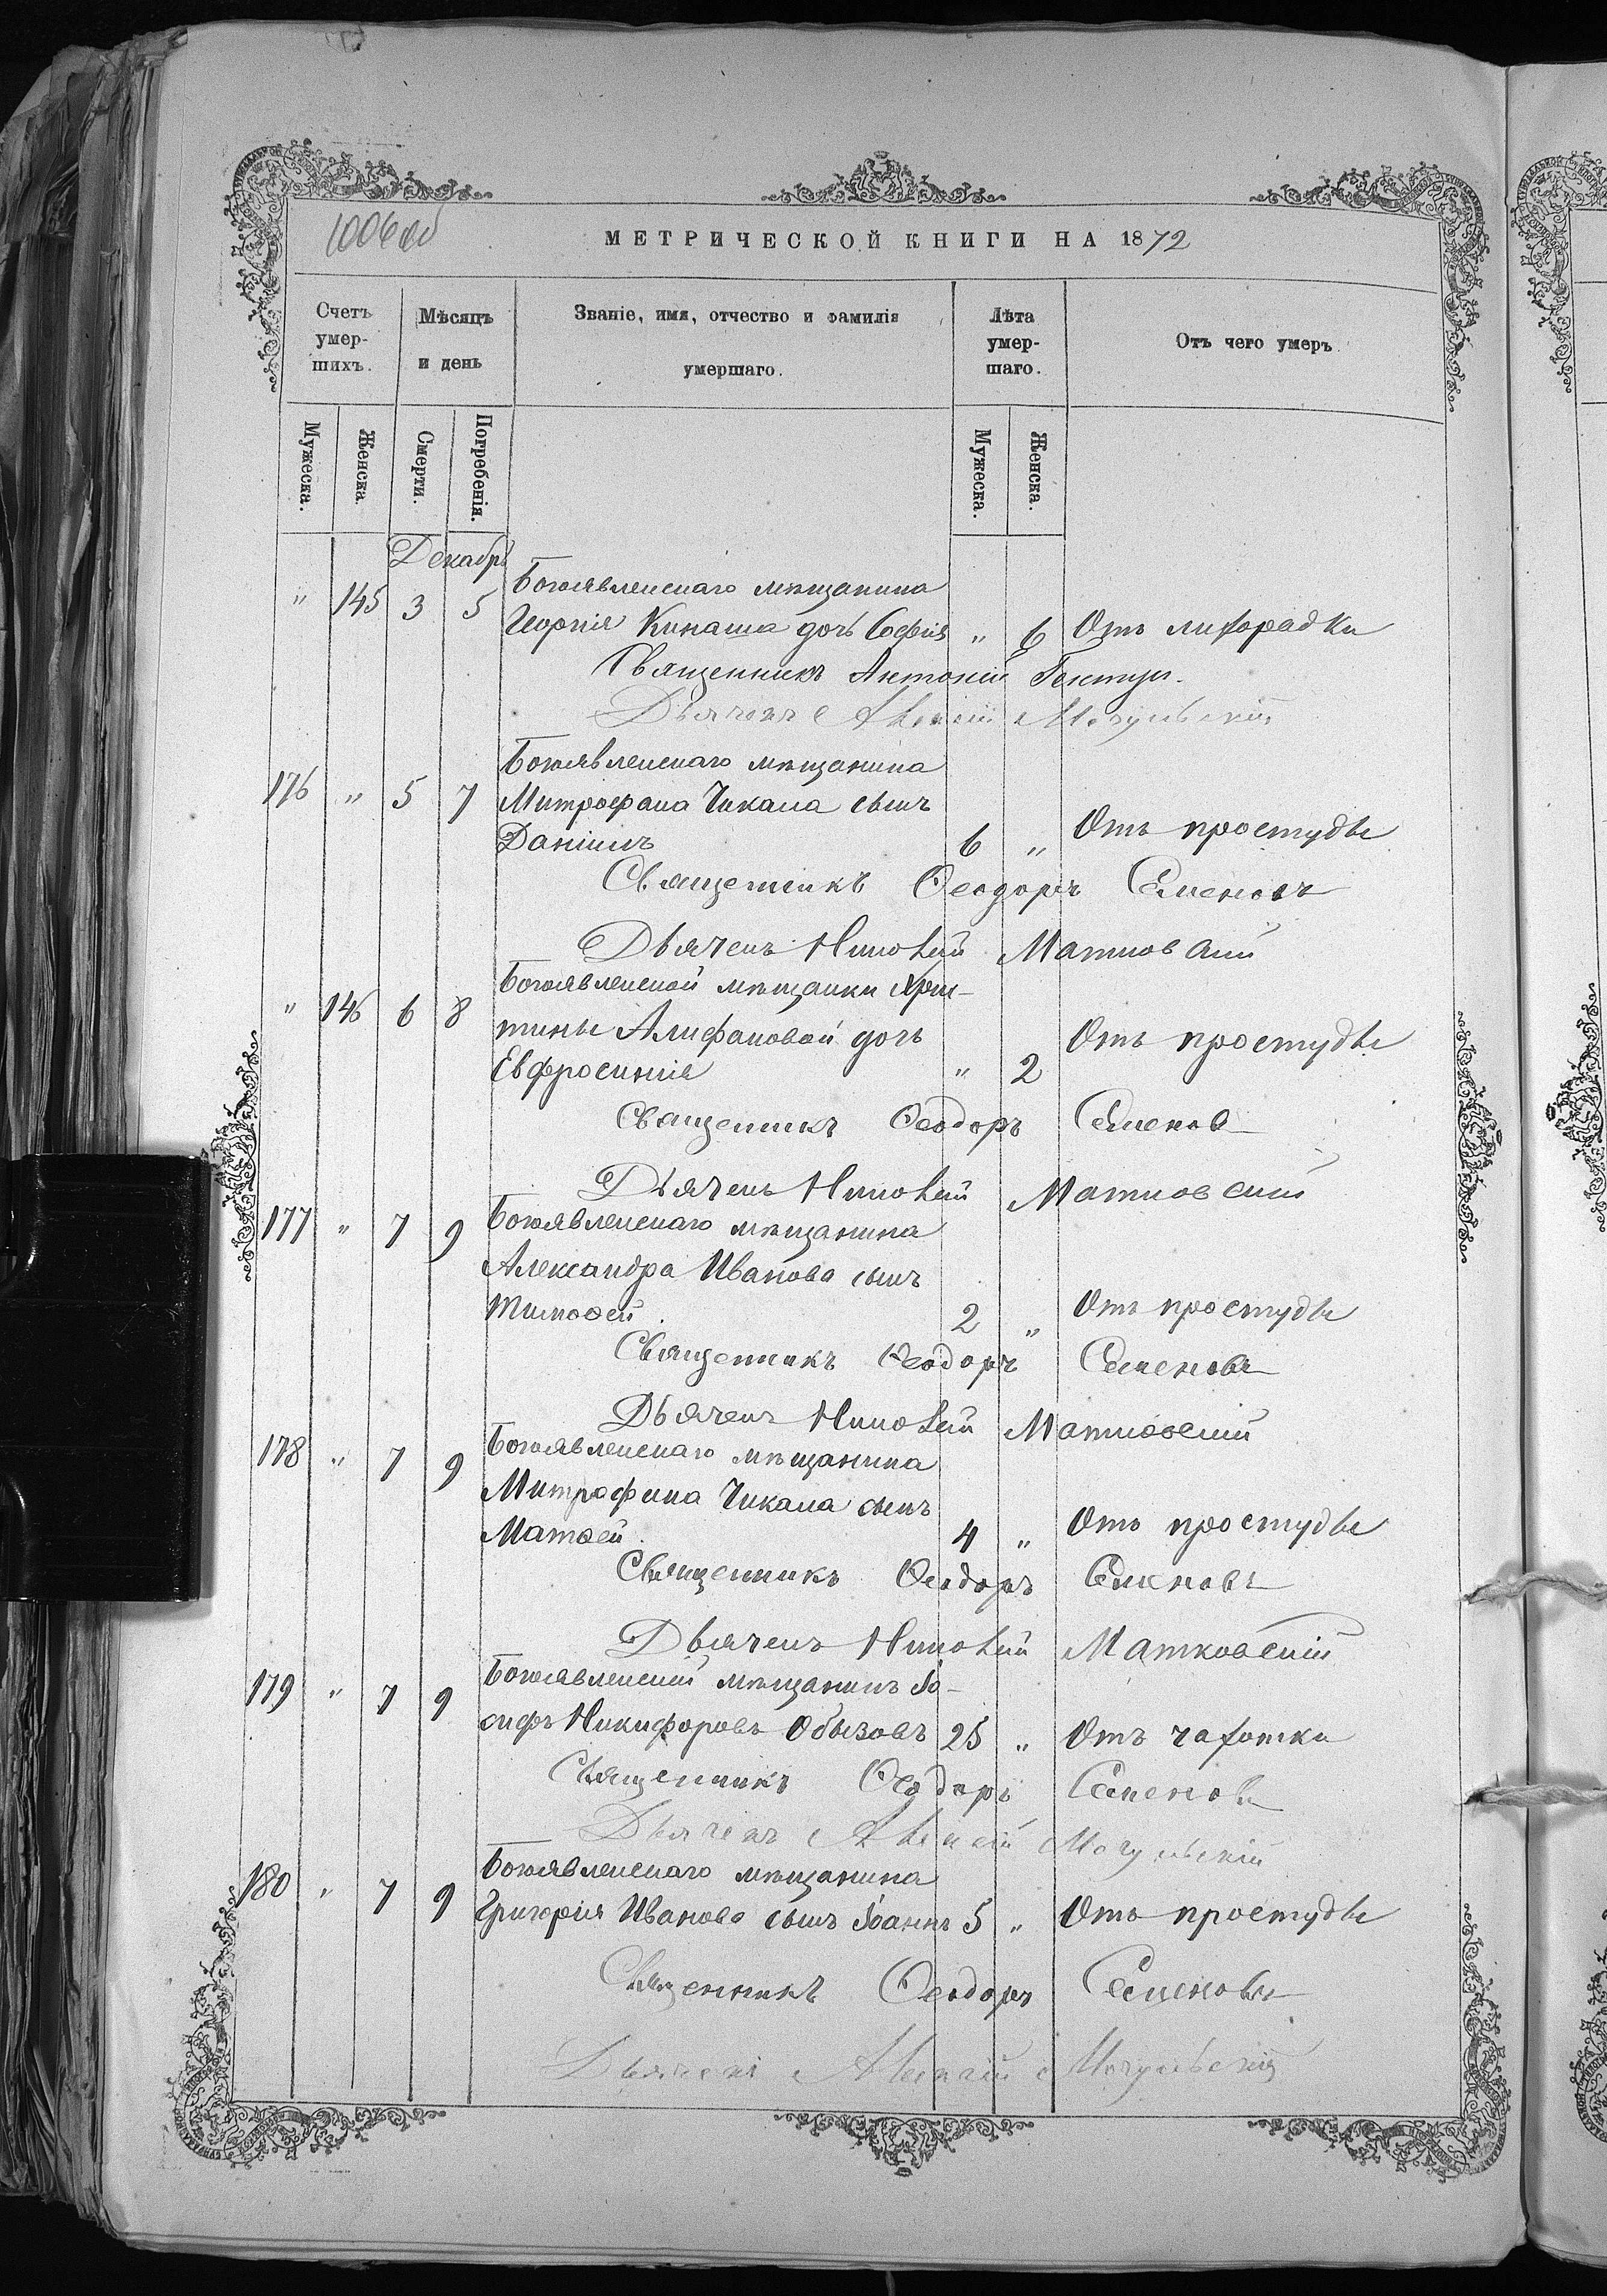 1006 об
МЕТРИЧЕСКОЙ КНИГИ НА 1872
Счетъ умер-шихъ. Мѣсяцъ и день Званіе, имя, отчество и фамилія умершаго. Лѣта умер-шаго. Отъ чего умеръ
Мужеска. Женска. Смерти. Погребенія. Мужеска. Женска.
Декабрь
Богоявленскаго мѣщанина
" 145 3 5 Георгія Кинаша дочь Софія " 6 Отъ лихорадки
Священникъ Антоній
Дьячекъ Алексій Мочульскій
Богоявленскаго мѣщанина
176 " 5 7 Митрофана Чикала сынъ
Даніилъ 6 " Отъ простуды
Священникъ Ѳеодоръ Семеновъ
Дьячекъ Николай Матковскій
Богоявленской мѣщанки Хрис-
" 146 6 8 тины Алифановой дочь
Евфросинія " 2 Отъ простуды
Священникъ Ѳеодоръ Семеновъ
Дьячекъ Николай Матковскій
177 " 7 9 Богоявленскаго мѣщанина
Александра Иванова сынъ
Тимоѳей 2 " Отъ простуды
Священникъ Ѳеодоръ Семеновъ
Дьячекъ Николай Матковскій
178 " 7 9 Богоявленскаго мѣщанина
Митрофана Чикала сынъ
Матѳей 4 " Отъ простуды
Священникъ Ѳеодоръ Семеновъ
Дьячекъ Николай Матковскій
179 " 7 9 Богоявленскій мѣщанинъ Іо-
сифъ Никифоровъ Обызовъ 25 " Отъ чахотки
Священникъ Ѳеодоръ Семеновъ
Дьячекъ Алексій Мочульскій
180 " 7 9 Богоявленскаго мѣщанина
Григорія Иванова сынъ Іоаннъ 5 " Отъ простуды
Священникъ Ѳеодоръ Семеновъ
Дьячекъ Алексій Мочульскій